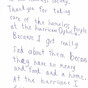 Thankyou for taking
care of the homeless People
at the harrison
Because I got really
Sad about them Because
they have no money
and food and a home.
at the harrison I